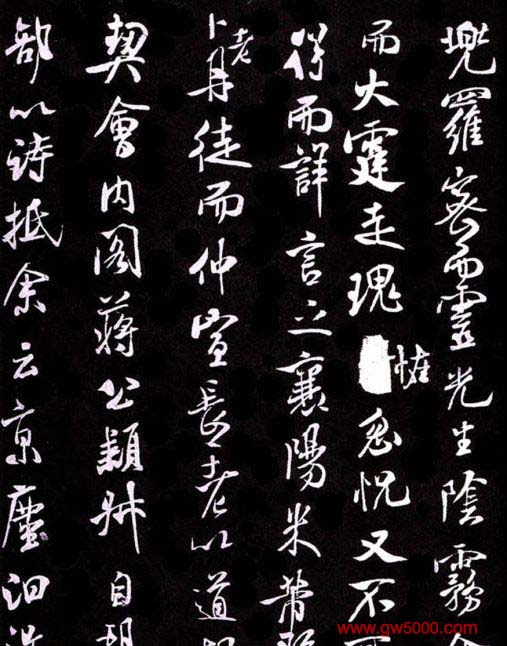 兜羅密而靈光生陰霧
而火霆走瑰恠忽怳又不可
得而詳言之襄陽米芾
卜老月徒而仲宣長老以道
契會内閣蔣公穎叔自
部以詩抵余云京塵汩没
www.gw5000.com